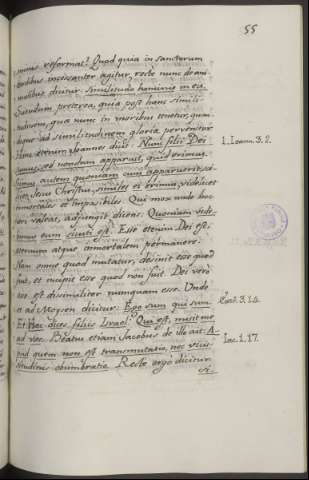 55
reformat? Quod quia in sanctorum
moribus incessanter agitur, recte nunc de ani-
malibus dicitur: Similitudo hominis in eis.
Sciendum preterea, quia post hanc simili-
tudinem, qua nunc in moribus tenetur, quan-
doque ad similitudinem gloriæ pervenitur.
Hinc etenim Joannes dicit: Nunc filii Dei
sumus, et nondum apparuit, quid erimus.
Scimus autem quoniam cum apparuerit,
Jesus Christus, similes ei erimus, videlicet
immortales et impasibiles. Qui mox unde hoc
valeat, adjungit, dicens: Quoniam vide-
bimus eum sicuti est. Esse etenim Dei est,
æternum atque immortalem permanere.
Nam omne quod mutatur, desinit esse quod
fuit, et incipit esse quod non fuit. Dei vero
esse est dissimiliter nunquam esse. Unde
et ad Moysen dicitur: Ego sum qui sum.
Et Hæc dices filiis Israel: Qui est, misit me
ad vos. Beatus etiam Jacobus de illo ait: A-
pud quem non est transmutatio, nec vicis-
situdinis obumbratio. Recte ergo dicitur
1. Joann. 3. 2.
Exod. 3. 14.
Jac. 1. 17.